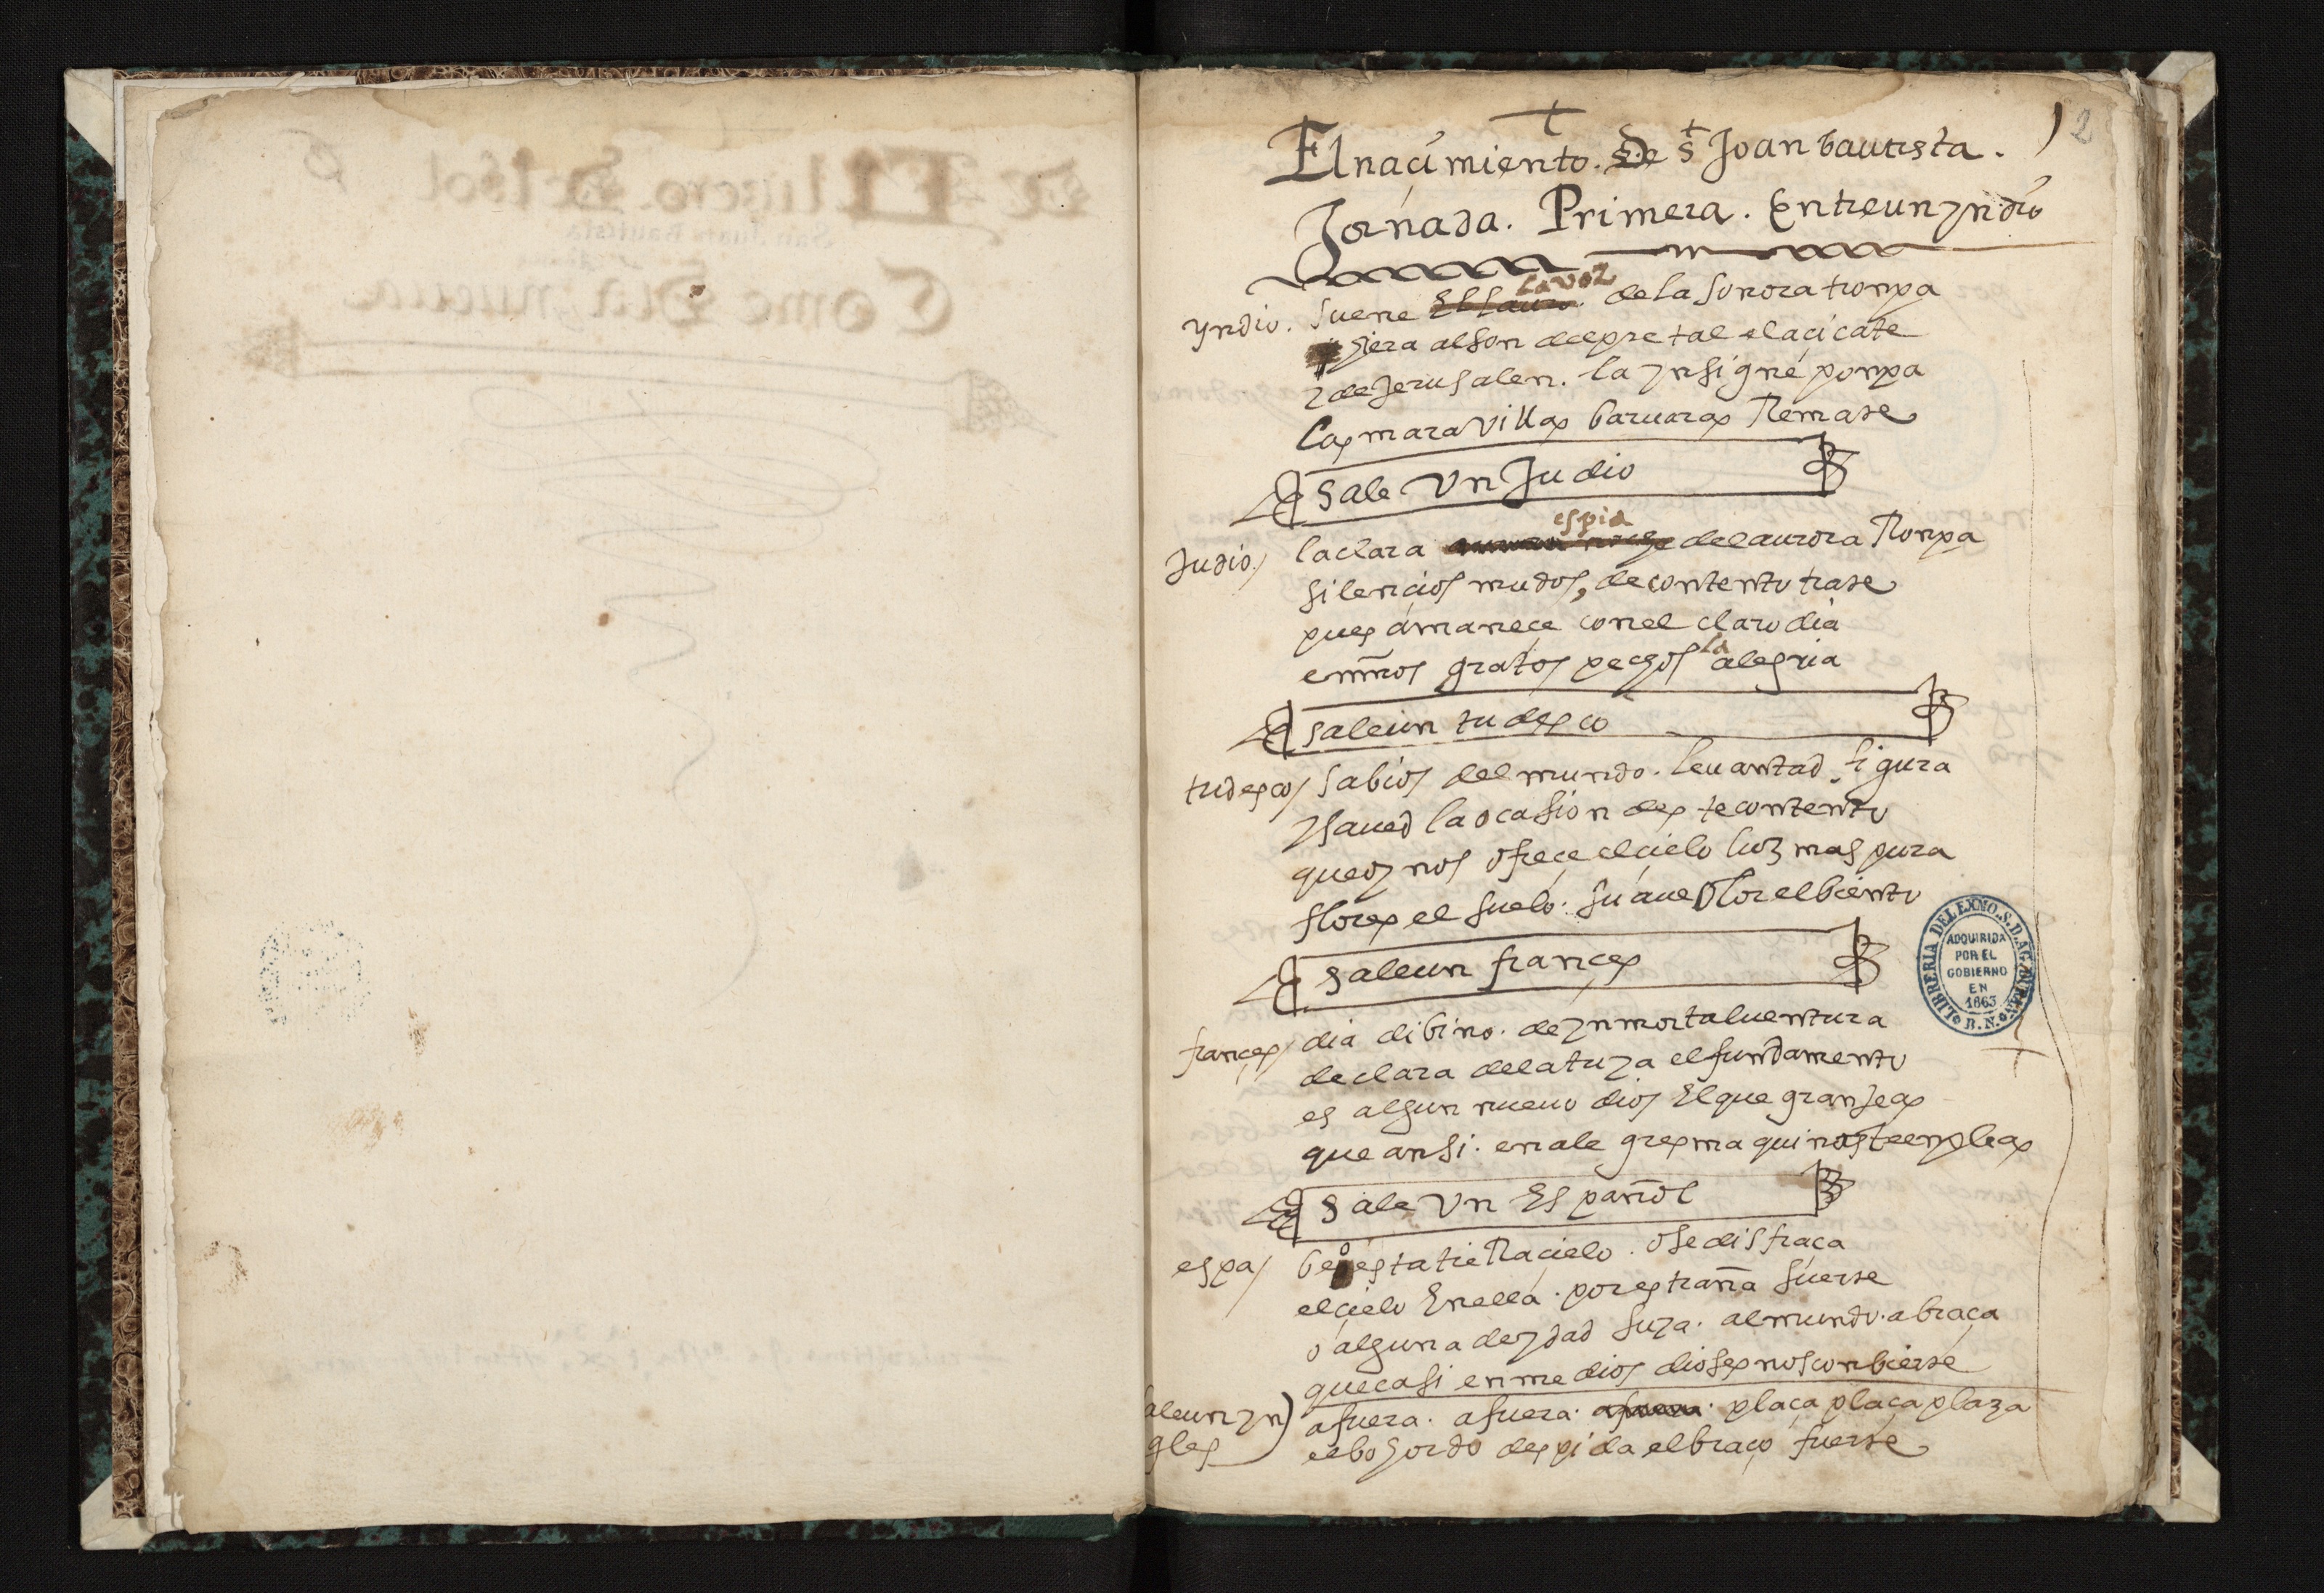 El naçimiento. De S Joan bautista.
2
Jornada. Primera. Entre un yndio
yndio. suene la voz de la sonora tronpa
yera al son del pretal el açicate
y de Jerusalen. la ynsigne ponpa
las maravillas baruaras Remate
Sale Un Judio
Judio / la clara espia del aurora Ronpa
silençios mudos, de contento trate
pues amaneçe con el claro dia
en nros gratos pechos la alegria
sale un tudesco
tudesco / sabios del mundo. leuantad figura
y saued la ocasion deste contento
que oy nos ofreçe el çielo luz mas pura
flores el suelo. suaue olor el biento
sale un françes
françes / dia dibino. de ynmortal uentura
declara de la tuya el fundamento
es algun nueuo dios El que granjeas
que ansi. en alegres maquinas te enpleas
Sale Un Español
espa / o es esta tieRa çielo. o se disfraça
el çielo En ella. por estraña suerte
o alguna deydad suya. al mundo. abraça
que casi en medios dioses nos conbierte
sale un yn
gles
afuera. afuera. plaça plaça plaza
el bohordo despida el braço fuerte
LIBRERIA DEL EXMO. S. D. AG. DURAN
ADQUIRIDA
POR EL
GOBIERNO
EN
1863
B. N.